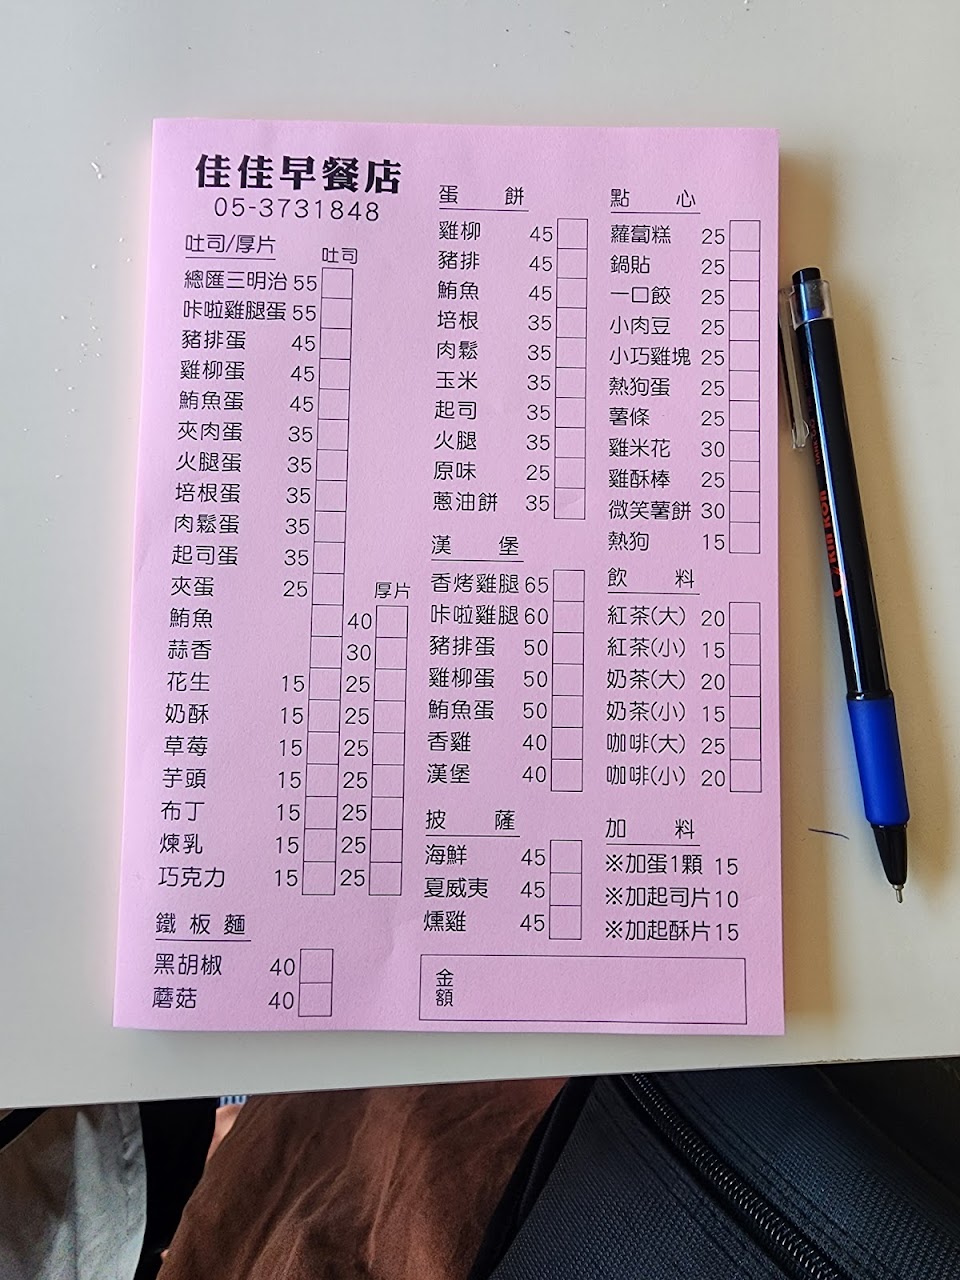 佳佳早餐店
05-3731848
吐司/厚片 吐司
總匯三明治 55
咔啦雞腿蛋 55
豬排蛋 45
雞柳蛋 45
鮪魚蛋 45
夾肉蛋 35
火腿蛋 35
培根蛋 35
肉鬆蛋 35
起司蛋 35
夾蛋 25
厚片
鮪魚 40
蒜香 30
花生 15 25
奶酥 15 25
草莓 15 25
芋頭 15 25
布丁 15 25
煉乳 15 25
巧克力 15 25
鐵板麵
黑胡椒 40
蘑菇 40
蛋餅
雞柳 45
豬排 45
鮪魚 45
培根 35
肉鬆 35
玉米 35
起司 35
火腿 35
原味 25
蔥油餅 35
漢堡
香烤雞腿 65
咔啦雞腿 60
豬排蛋 50
雞柳蛋 50
鮪魚蛋 50
香雞 40
漢堡 40
披薩
海鮮 45
夏威夷 45
燻雞 45
點心
蘿蔔糕 25
鍋貼 25
一口餃 25
小肉豆 25
小巧雞塊 25
熱狗蛋 25
薯條 25
雞米花 30
雞酥棒 25
微笑薯餅 30
熱狗 15
飲料
紅茶(大) 20
紅茶(小) 15
奶茶(大) 20
奶茶(小) 15
咖啡(大) 25
咖啡(小) 20
加料
※加蛋1顆 15
※加起司片10
※加起酥片15
金額